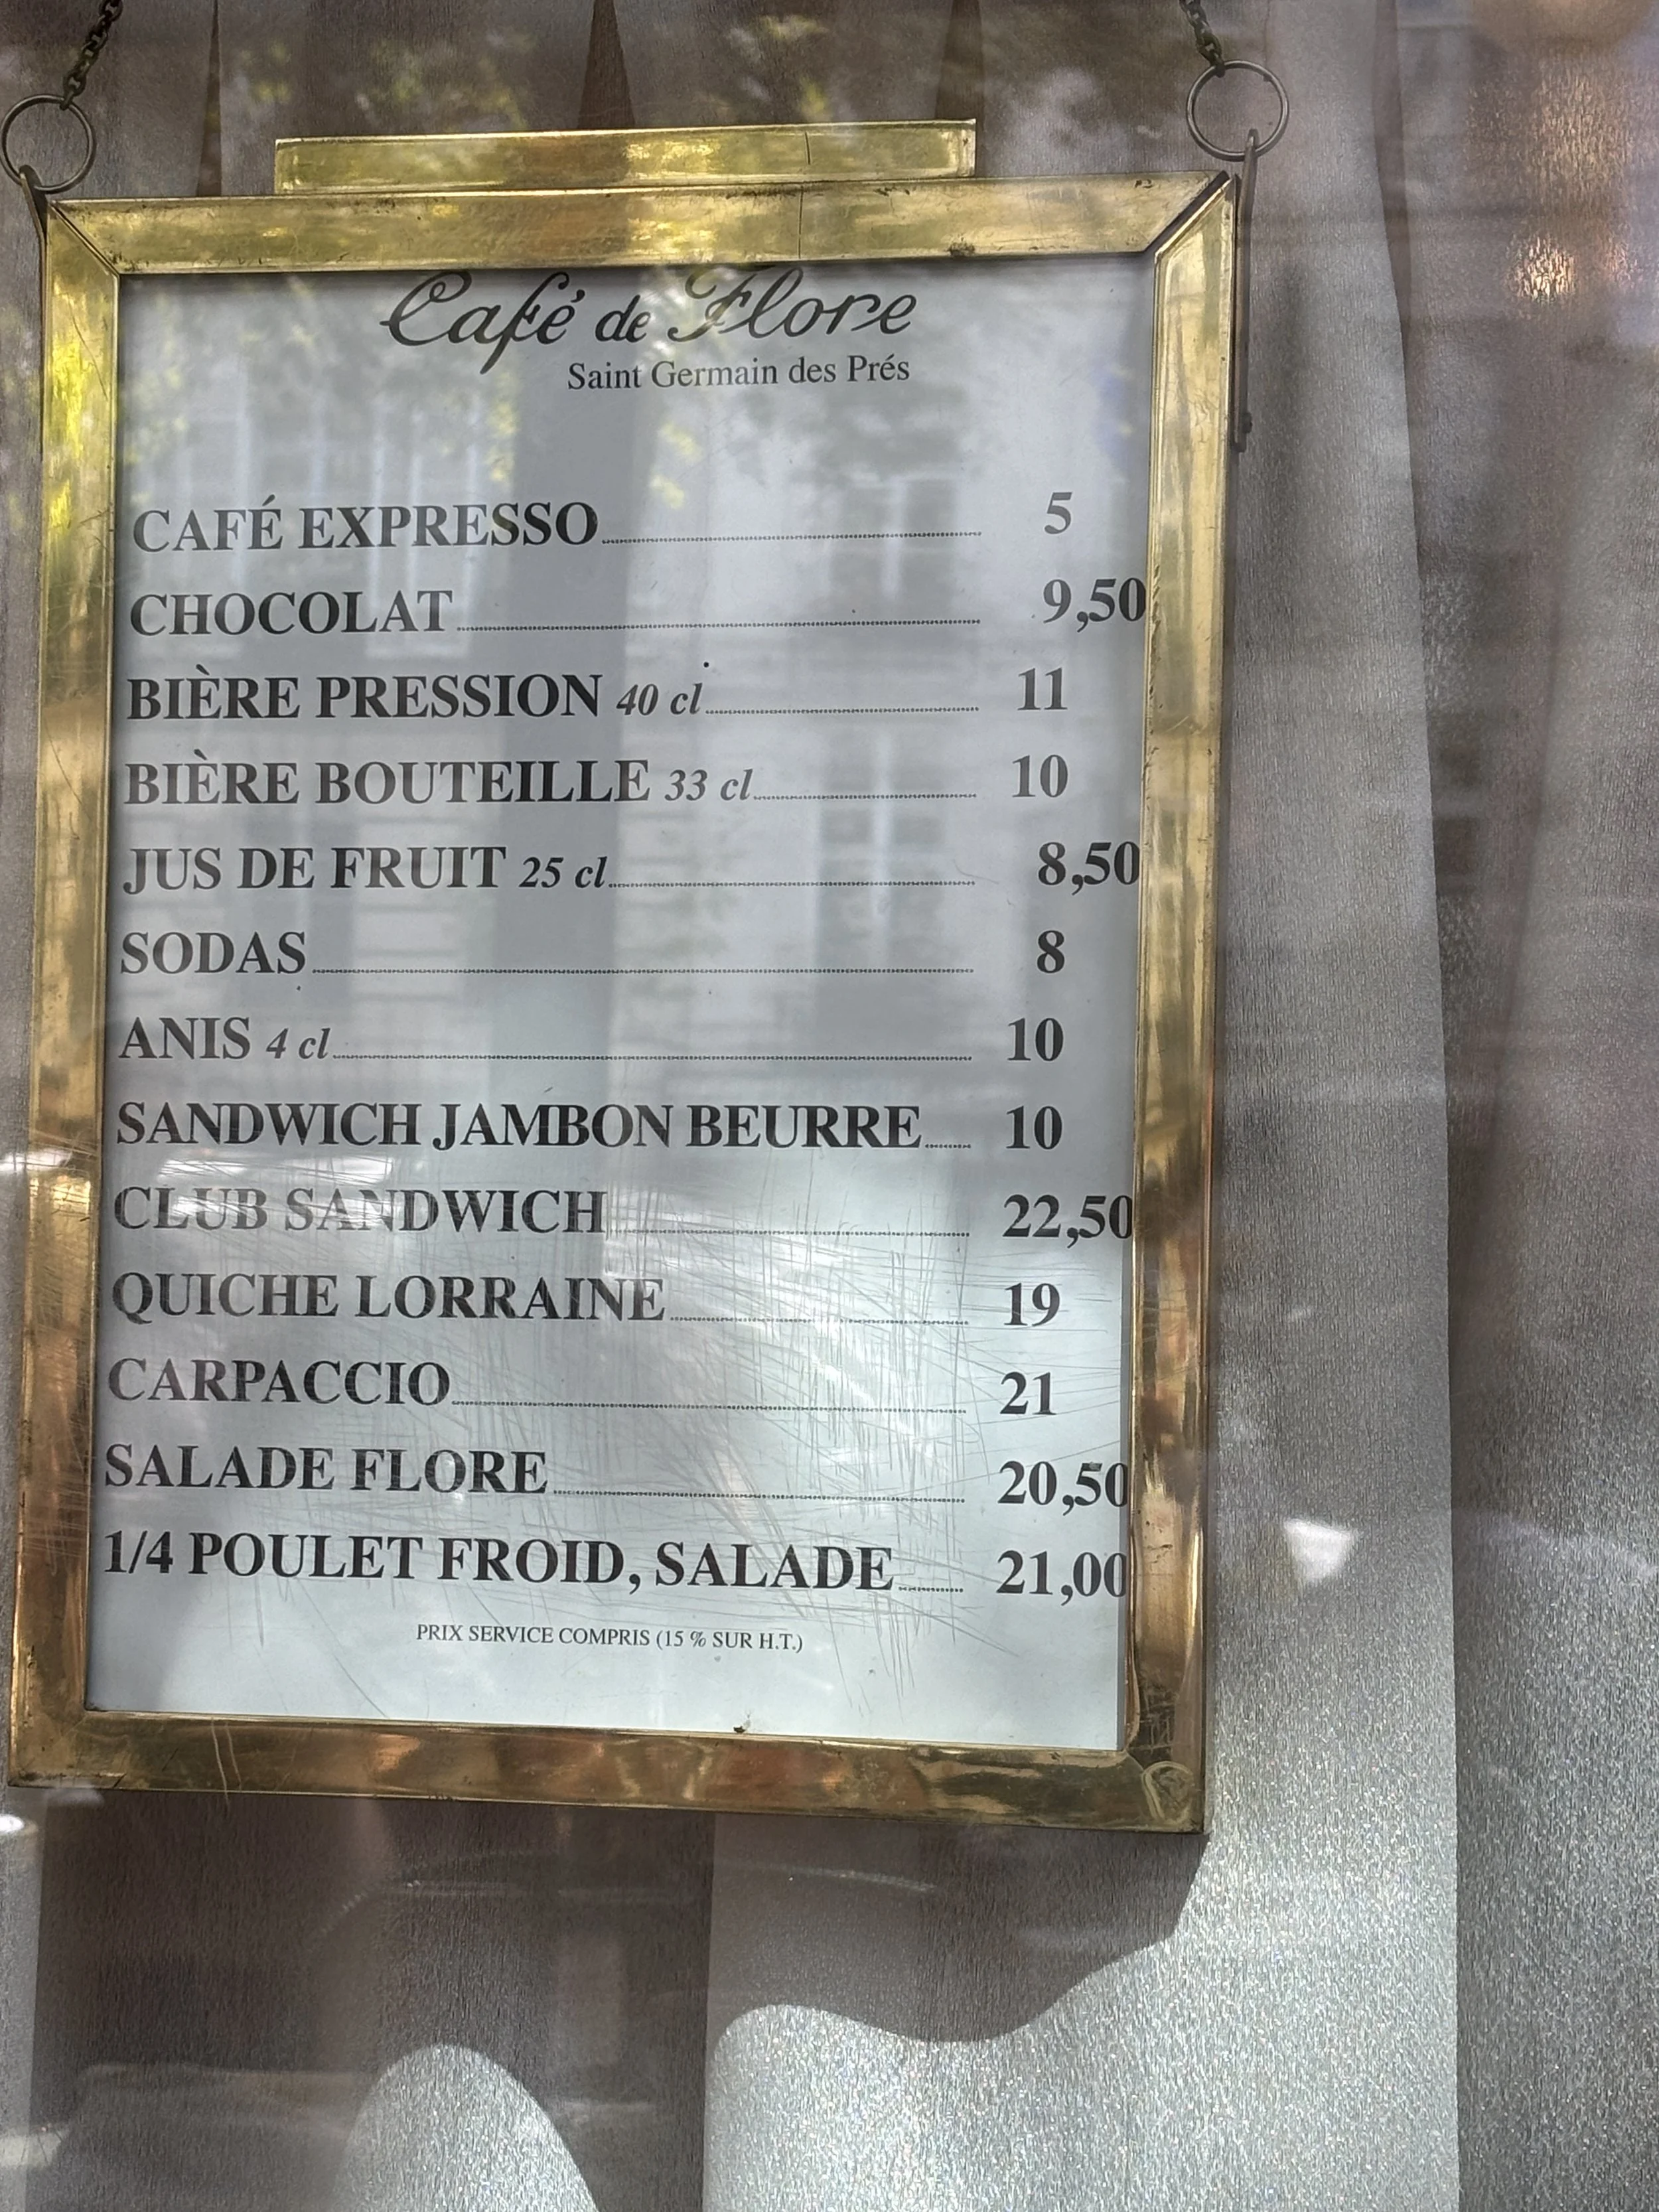 Café de Flore
Saint Germain des Prés
CAFÉ EXPRESSO 5
CHOCOLAT 9,50
BIÈRE PRESSION 40 cl 11
BIÈRE BOUTEILLE 33 cl 10
JUS DE FRUIT 25 cl 8,50
SODAS 8
ANIS 4 cl 10
SANDWICH JAMBON BEURRE 10
CLUB SANDWICH 22,50
QUICHE LORRAINE 19
CARPACCIO 21
SALADE FLORE 20,50
1/4 POULET FROID, SALADE 21,00
PRIX SERVICE COMPRIS (15 % SUR H.T.)